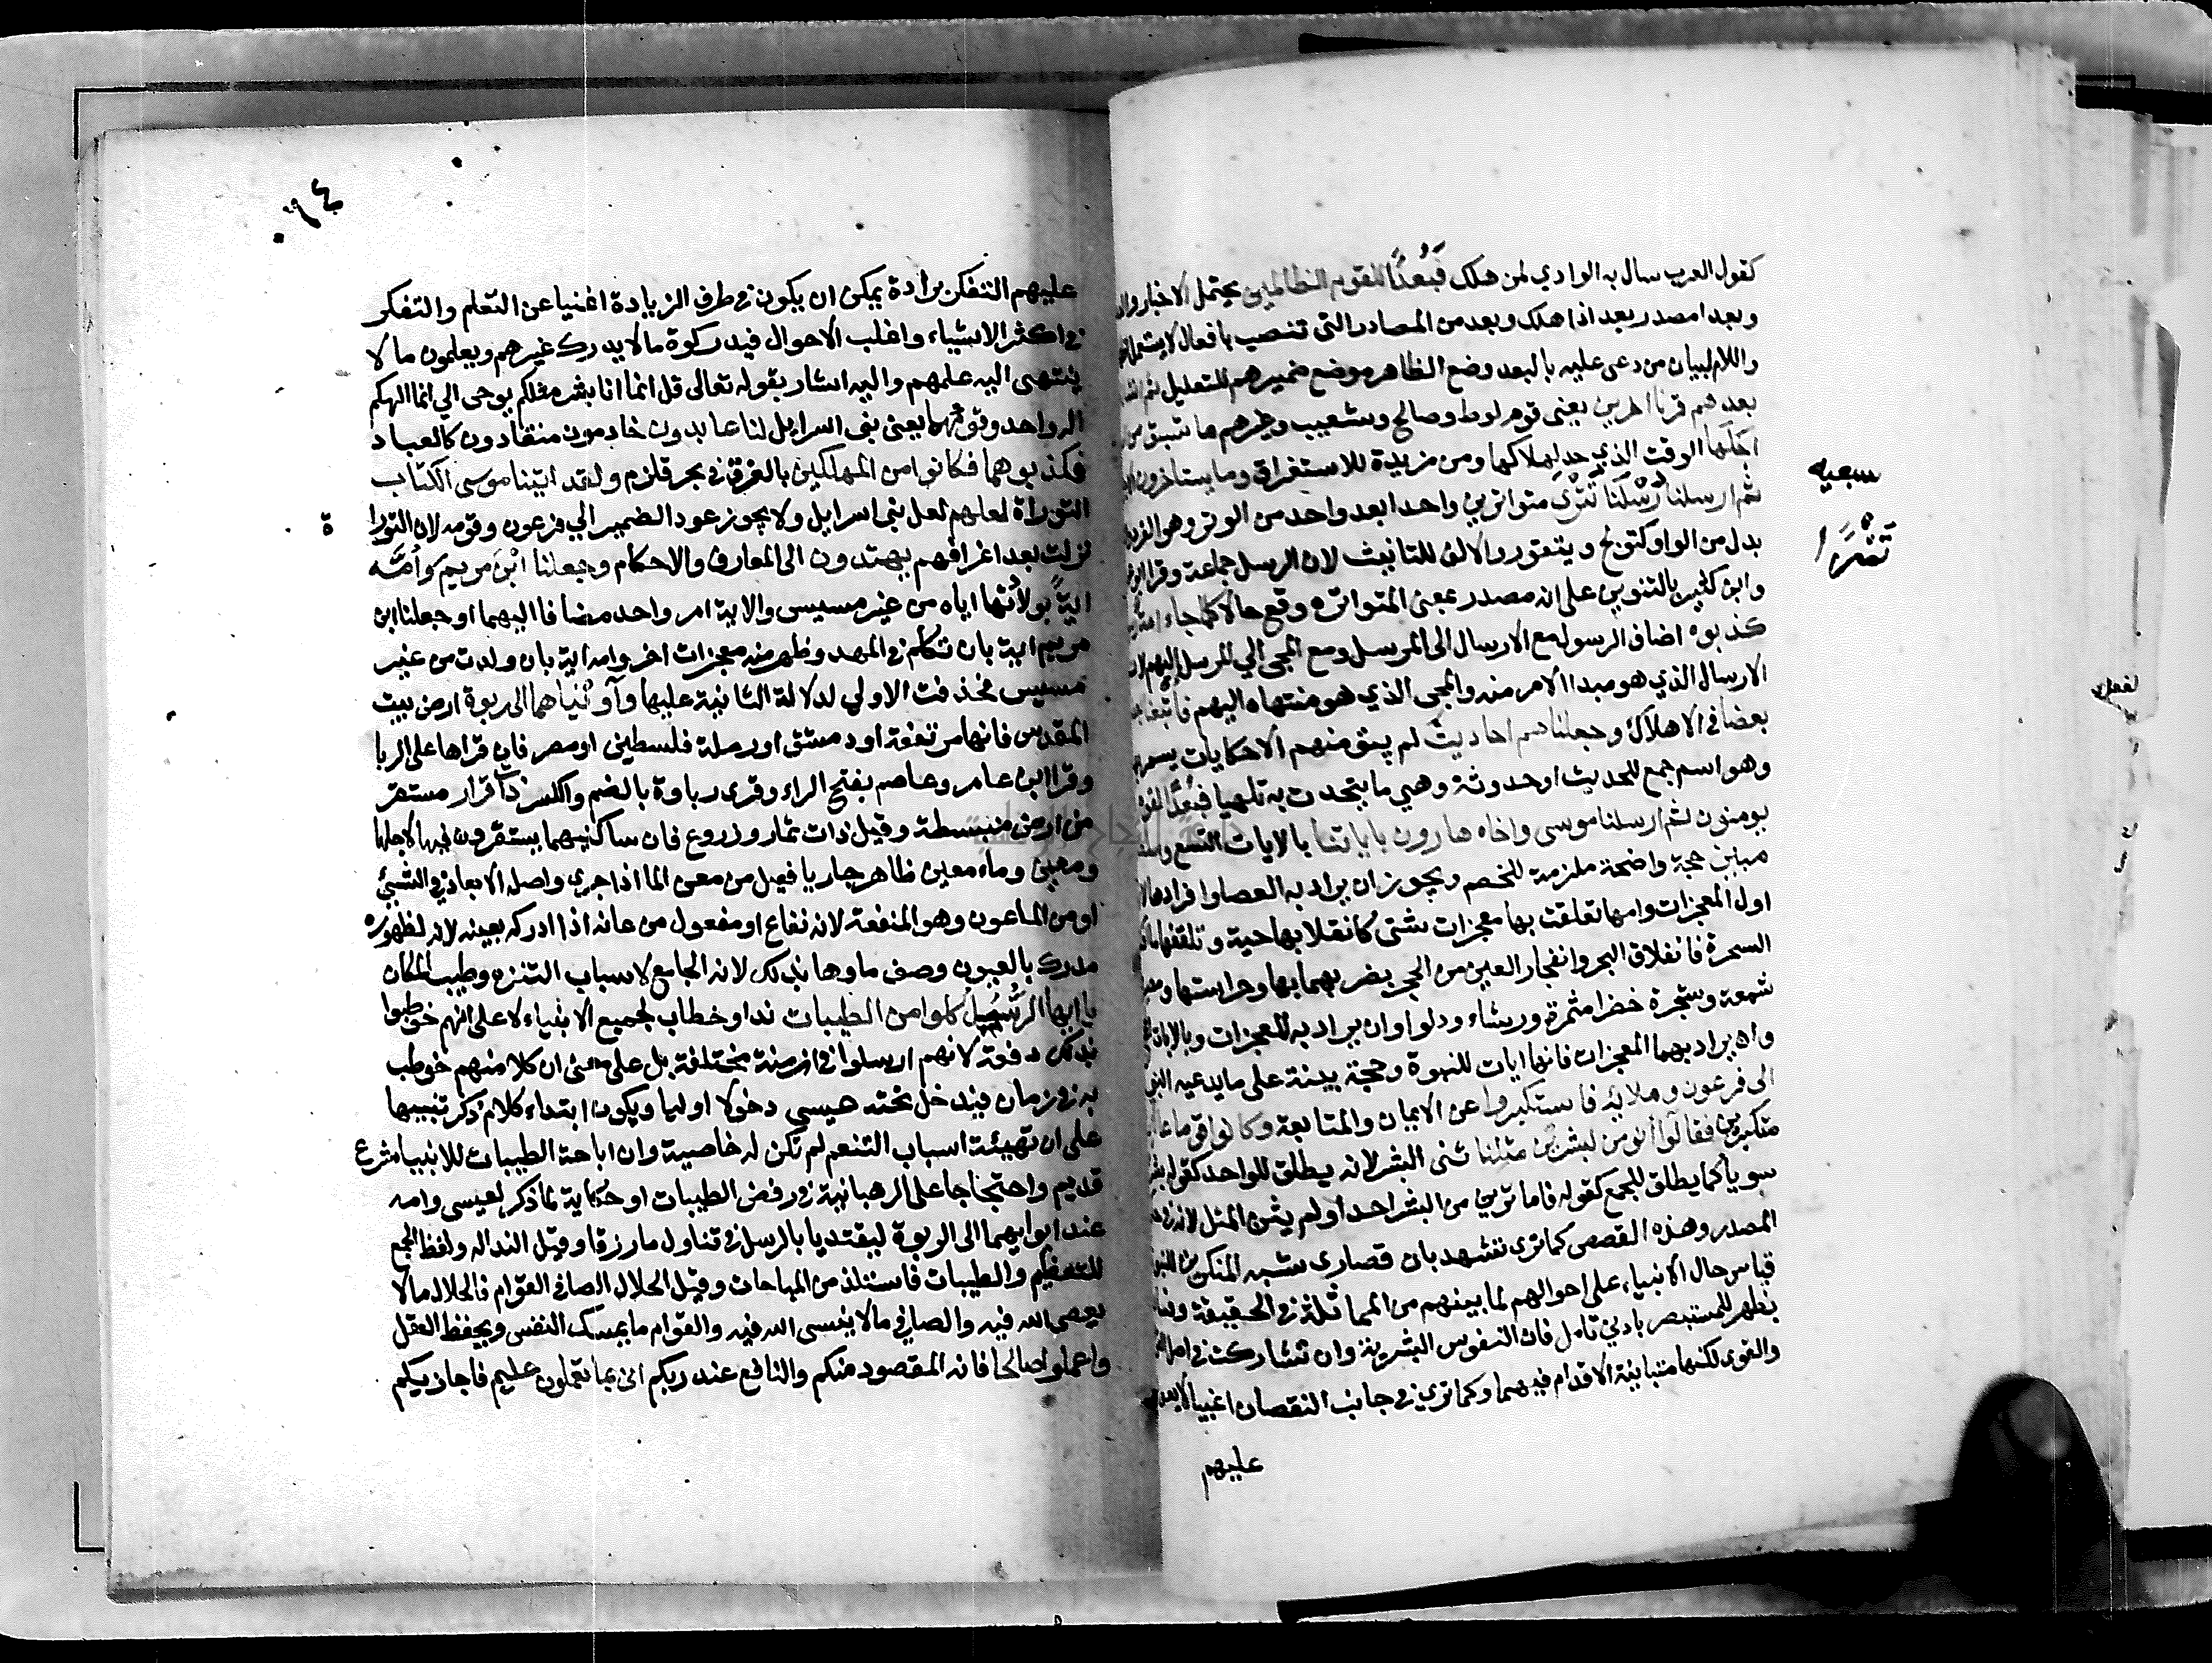 كقول العرب سال به الوادي لمن هلك فَبُعْدًا للقوم الظالمين يحتمل الاخبار والد
وبعدا مصدر بعد اذا هلك وبعد من المصادر التي تنصب بافعال لا يستعمل
واللام لبيان من دعى عليه بالبعد وضع الظاهر موضع ضميرهم للتعليل ثم انشا
بعدهم قرنا اخرين يعني قوم لوط وصالح وشعيب وغيرهم ما تسبق من
اجلها الوقت الذي حد لهلاكها ومن مزيدة للاستغراق وما يستاخرون
ثم ارسلنا رُسُلَنَا تَتْرَى متواترين واحدا بعد واحد من الوتر وهو الفرد
بدل من الواو كتولج ويتقور والالف للتانيث لان الرسل جماعة وقرا
وابن كثير بالتنوين على انه مصدر بمعنى المتواترة وقع حالا كلما جاء امة
كذبوه اضاف الرسول مع الارسال الى المرسل ومع المجى الي المرسل اليهم لان
الارسال الذي هو مبدا الامر منه والمجى الذي هو منتهاه اليهم فاتبعنا
بعضا في الاهلاك وجعلناهم احاديث لم يبق منهم الا حكايات يسمر
وهو اسم جمع للحديث او حدوثة وهي ما يتحدث به تلهيا فَبُعْدًا لقوم
يومنون ثم ارسلنا موسى واخاه هارون باياتنا بالايات التسع
مبين حجة واضحة ملزمة للخصم ويجوز ان يراد به العصا وافرادها
اول المعجزات وامها تعلقت بها معجزات شتى كانقلابها حية وتلقفها
السحرة فانفلاق البحر وانفجار العين من الحجر بضربهما بها وحراستها
شمعة وشجرة خضرا مثمرة ورشاء ودلوا وان يراد به المعجزات وبالايات
وان يراد بهما المعجزات فانها ايات للنبوة وحجة بينة على ما يدعيه النبي
الى فرعون وملايه فاستكبروا عن الايمان والمتابعة وكانوا قوما
متكبرين فقالوا أنومن لبشرين مثلنا ثنى البشر لانه يطلق للواحد كقوله بشرا
سويا كما يطلق للجمع كقوله فاما ترين من البشر احدا ولم يثن المثل لانه
المصدر وهذه القصص كما ترى تشهد بان قصارى شبه المنكرين للنبوة
قياس حال الانبياء على احوالهم لما بينهم من المماثلة في الحقيقة
يظهر للمستبصر بادني تامل فان النفوس البشرية وان تشاركت في
والقوى لكنها متباينة الاقدام فيهما وكما ترى في جانب النقصان اغبيا لا يعود
عليهم
سبعيه
تَتْرًا
عليهم التفكر برادة يمكن ان يكون في طرف الزيادة اغنيا عن التعلم والتفكر
في اكثر الاشياء واغلب الاحوال فيدركوة ما لا يدرك غيرهم ويعلمون ما لا
ينتهى اليه علمهم واليه اشار بقوله تعالى قل انما انا بشر مثلكم يوحى الي انما الهكم
اله واحد وقومهما يعني بنى اسرايل لنا عابدون خادمون منقادون كالعباد
فكذبوهما فكانوا من المهلكين بالغرق في بحر قلزم ولقد اتينا موسى الكتاب
التوراة لعلهم لعل بني اسرايل ولا يجوز عود الضمير الي فرعون وقومه لان التورا
ة
نزلت بعد اغراقهم يهتدون الى المعارف والاحكام وجعلنا ابْنَ مريم وَأُمَّه
ايةً بولادتها اياه من غير مسيس والاية امر واحد مضافا اليهما او جعلنا ابن
مريم اية بان تكلم في المهد وظهر منه معجزات اخر وامه اية بان ولدت من غير
مسيس فحذفت الاولي لدلالة الثانية عليها وَآوَيْنَاهما الى ربوة ارض بيت
المقدس فانها مرتفعة او دمشق او رملة فلسطين او مصر فان قراها على الربا
وقرا ابن عامر وعاصم بفتح الراء وقرى رباوة بالضم والكسر ذات قرار مستقر
من ارض منبسطة وقيل ذات ثمار وزروع فان ساكنيهما يستقرون فيها لاجلها
ومعين وماء معين ظاهر جار يا فعيل من معن الما اذا جرى واصله الابعاد في الشيئ
او من الماعون وهو المنفعة لانه نفاع او مفعول من عانه اذا ادركه بعينه لانه لظهوره
مدرك بالعيون وصف ماوها بذلك لانه الجامع لاسباب التنزه وطيب المكان
يا ايها الرُّسُلُ كلوا من الطيبات ندا وخطاب لجميع الانبياء لا على انهم خوطبوا
بذلك دفعة لانهم ارسلوا في ازمنة مختلفة بل على معنى ان كلا منهم خوطب
به في زمان فيدخل تحته عيسي دخولا اوليا ويكون ابتداء كلام ذكر تنبيها
على ان تهيئة اسباب التنعم لم تكن له خاصية وان اباحة الطيبات للانبيا شرع
قديم واحتجاجا على الرهبانية في رفض الطيبات او حكاية لما ذكر لعيسى وامه
عند ايوايهما الى الربوة ليقتديا بالرسل في تناول ما رزقا وقيل الندا له ولفظ الجمع
للتعظيم والطيبات فاستلذ من المباحات وقيل الحلال الصافي القوام فالحلال ما لا
يعصى الله فيه والصافي ما لا ينسى الله فيه والقوام ما يمسك النفس ويحفظ العقل
واعملوا صالحا فانه المقصود منكم والنافع عند ربكم انى بما تعملون عليم فاجازيكم